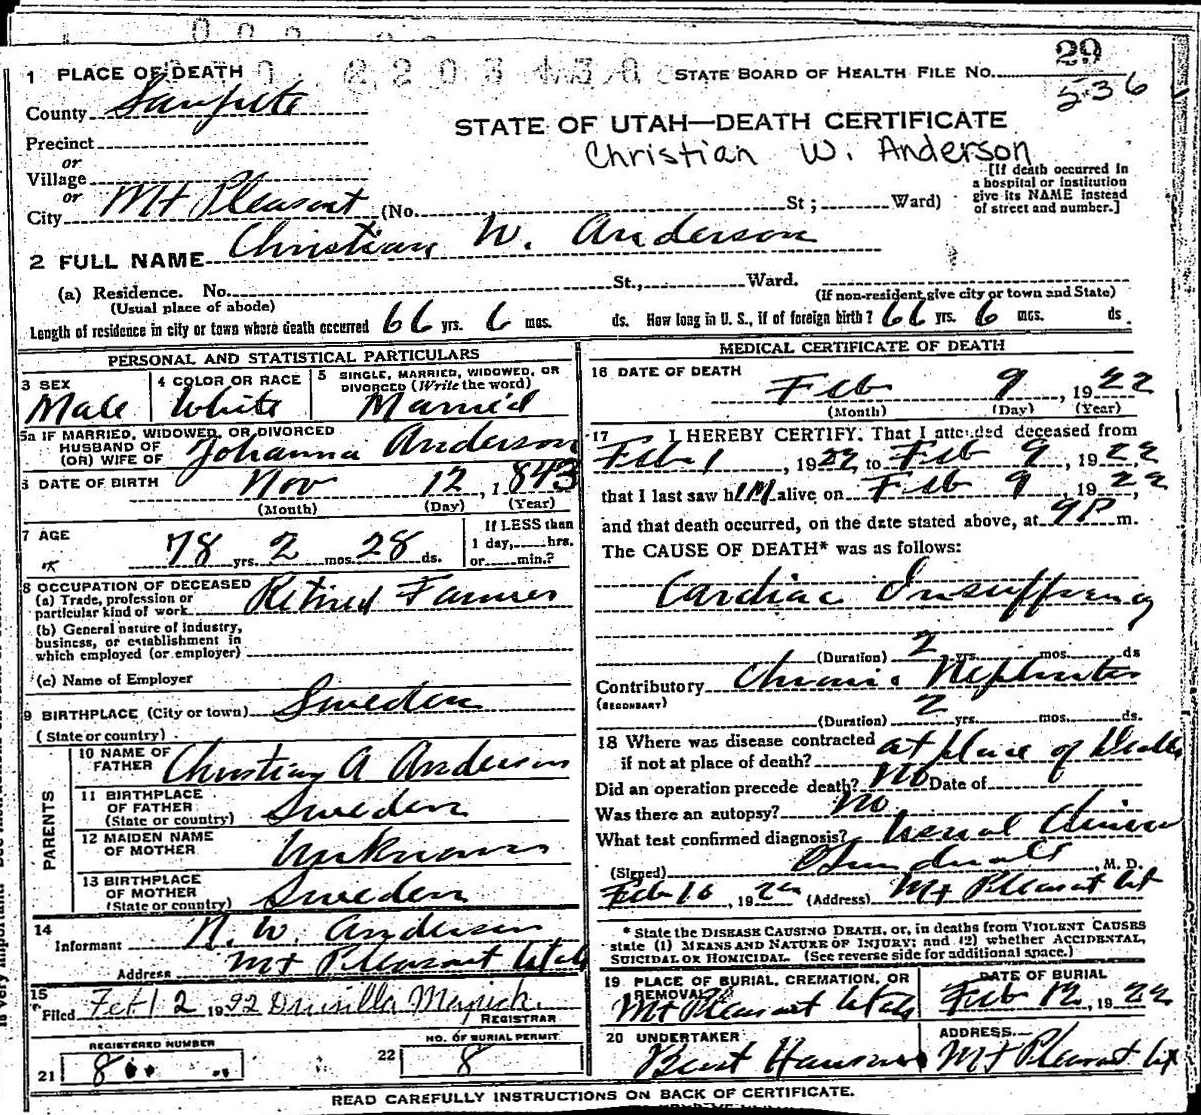 29
1 PLACE OF DEATH STATE BOARD OF HEALTH FILE No. 236
County Sanpete
STATE OF UTAH—DEATH CERTIFICATE
Precinct
Christian W. Anderson
or
Village
or
City Mt Pleasant (No. St; Ward)
[If death occurred in
a hospital or institution
give its NAME instead
of street and number.]
2 FULL NAME Christian W. Anderson
(a) Residence. No. St., Ward.
(Usual place of abode) (If non-resident give city or town and State)
Length of residence in city or town where death occurred 66 yrs. 6 mos. ds. How long in U. S., if of foreign birth? 66 yrs. 6 mos. ds.
PERSONAL AND STATISTICAL PARTICULARS
3 SEX
Male
4 COLOR OR RACE
White
5 SINGLE, MARRIED, WIDOWED, OR
DIVORCED (Write the word)
Married
5a IF MARRIED, WIDOWED, OR DIVORCED
HUSBAND OF
(OR) WIFE OF Johanna Anderson
6 DATE OF BIRTH Nov 12, 1843
(Month) (Day) (Year)
7 AGE
78 yrs. 2 mos. 28 ds.
If LESS than
1 day, hrs.
or min.?
8 OCCUPATION OF DECEASED
(a) Trade, profession or
particular kind of work Retired Farmer
(b) General nature of industry,
business, or establishment in
which employed (or employer)
(c) Name of Employer
9 BIRTHPLACE (City or town) Sweden
(State or country)
PARENTS
10 NAME OF
FATHER Christian A Anderson
11 BIRTHPLACE
OF FATHER
(State or country) Sweden
12 MAIDEN NAME
OF MOTHER Unknown
13 BIRTHPLACE
OF MOTHER
(State or country) Sweden
14
Informant N. W. Anderson
Address Mt Pleasant Utah
15
Filed Feb 12 1922 Drusilla
REGISTRAR
REGISTERED NUMBER
21 8
NO. OF BURIAL PERMIT
22 8
MEDICAL CERTIFICATE OF DEATH
16 DATE OF DEATH
Feb 9, 1922
(Month) (Day) (Year)
17 I HEREBY CERTIFY, That I attended deceased from
Feb 1, 1922 to Feb 9, 1922,
that I last saw him alive on Feb 9 1922,
and that death occurred, on the date stated above, at 9P m.
The CAUSE OF DEATH* was as follows:
Cardiac Insuffiency
(Duration) 2 yrs. mos. ds
Contributory Chronic Nephritis
(SECONDARY)
(Duration) 2 yrs. mos. ds.
18 Where was disease contracted
if not at place of death? at place of death
Did an operation precede death? No Date of
Was there an autopsy? No
What test confirmed diagnosis? Usual Clinical
(Signed) M. D.
Feb 10, 1922 (Address) Mt Pleasant Ut
* State the DISEASE CAUSING DEATH, or, in deaths from VIOLENT CAUSES
state (1) MEANS AND NATURE OF INJURY; and (2) whether ACCIDENTAL,
SUICIDAL OR HOMICIDAL. (See reverse side for additional space.)
19 PLACE OF BURIAL, CREMATION, OR
REMOVAL
Mt Pleasant Utah
DATE OF BURIAL
Feb 12, 1922
20 UNDERTAKER
Bent Hansen
ADDRESS
Mt Pleasant Ut
READ CAREFULLY INSTRUCTIONS ON BACK OF CERTIFICATE.